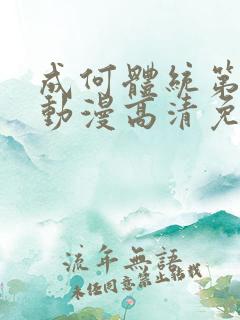 成何體統第
動漫高清免
流年無語
未經同意禁止轉載